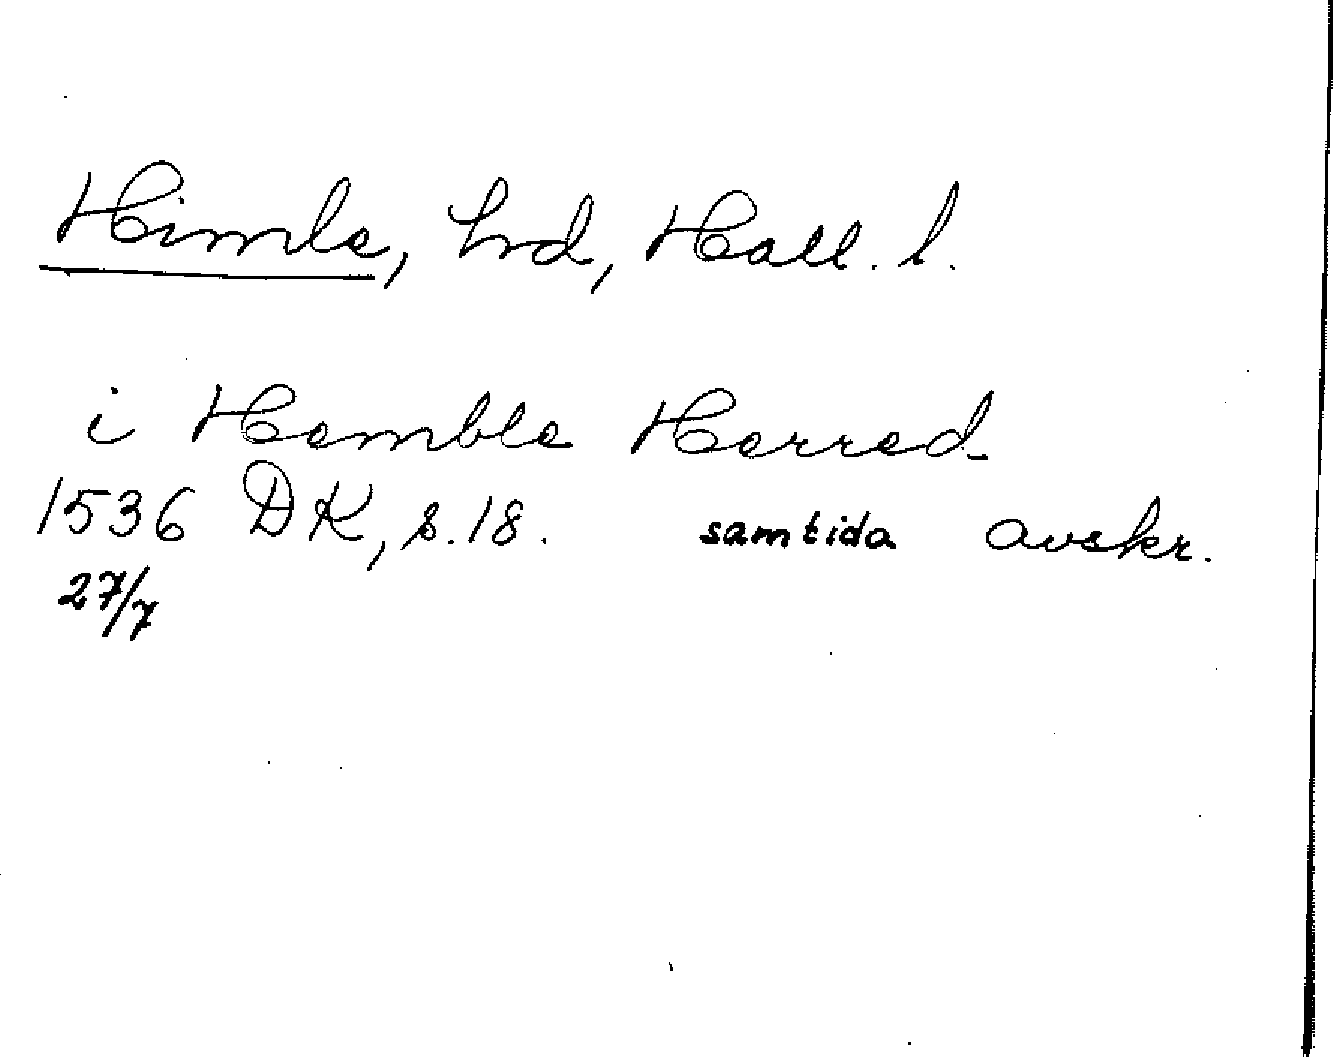 Himle, hrd, Hall. l.
i Hemble Herred
1536 DK, s. 18. samtida avskr.
27/7